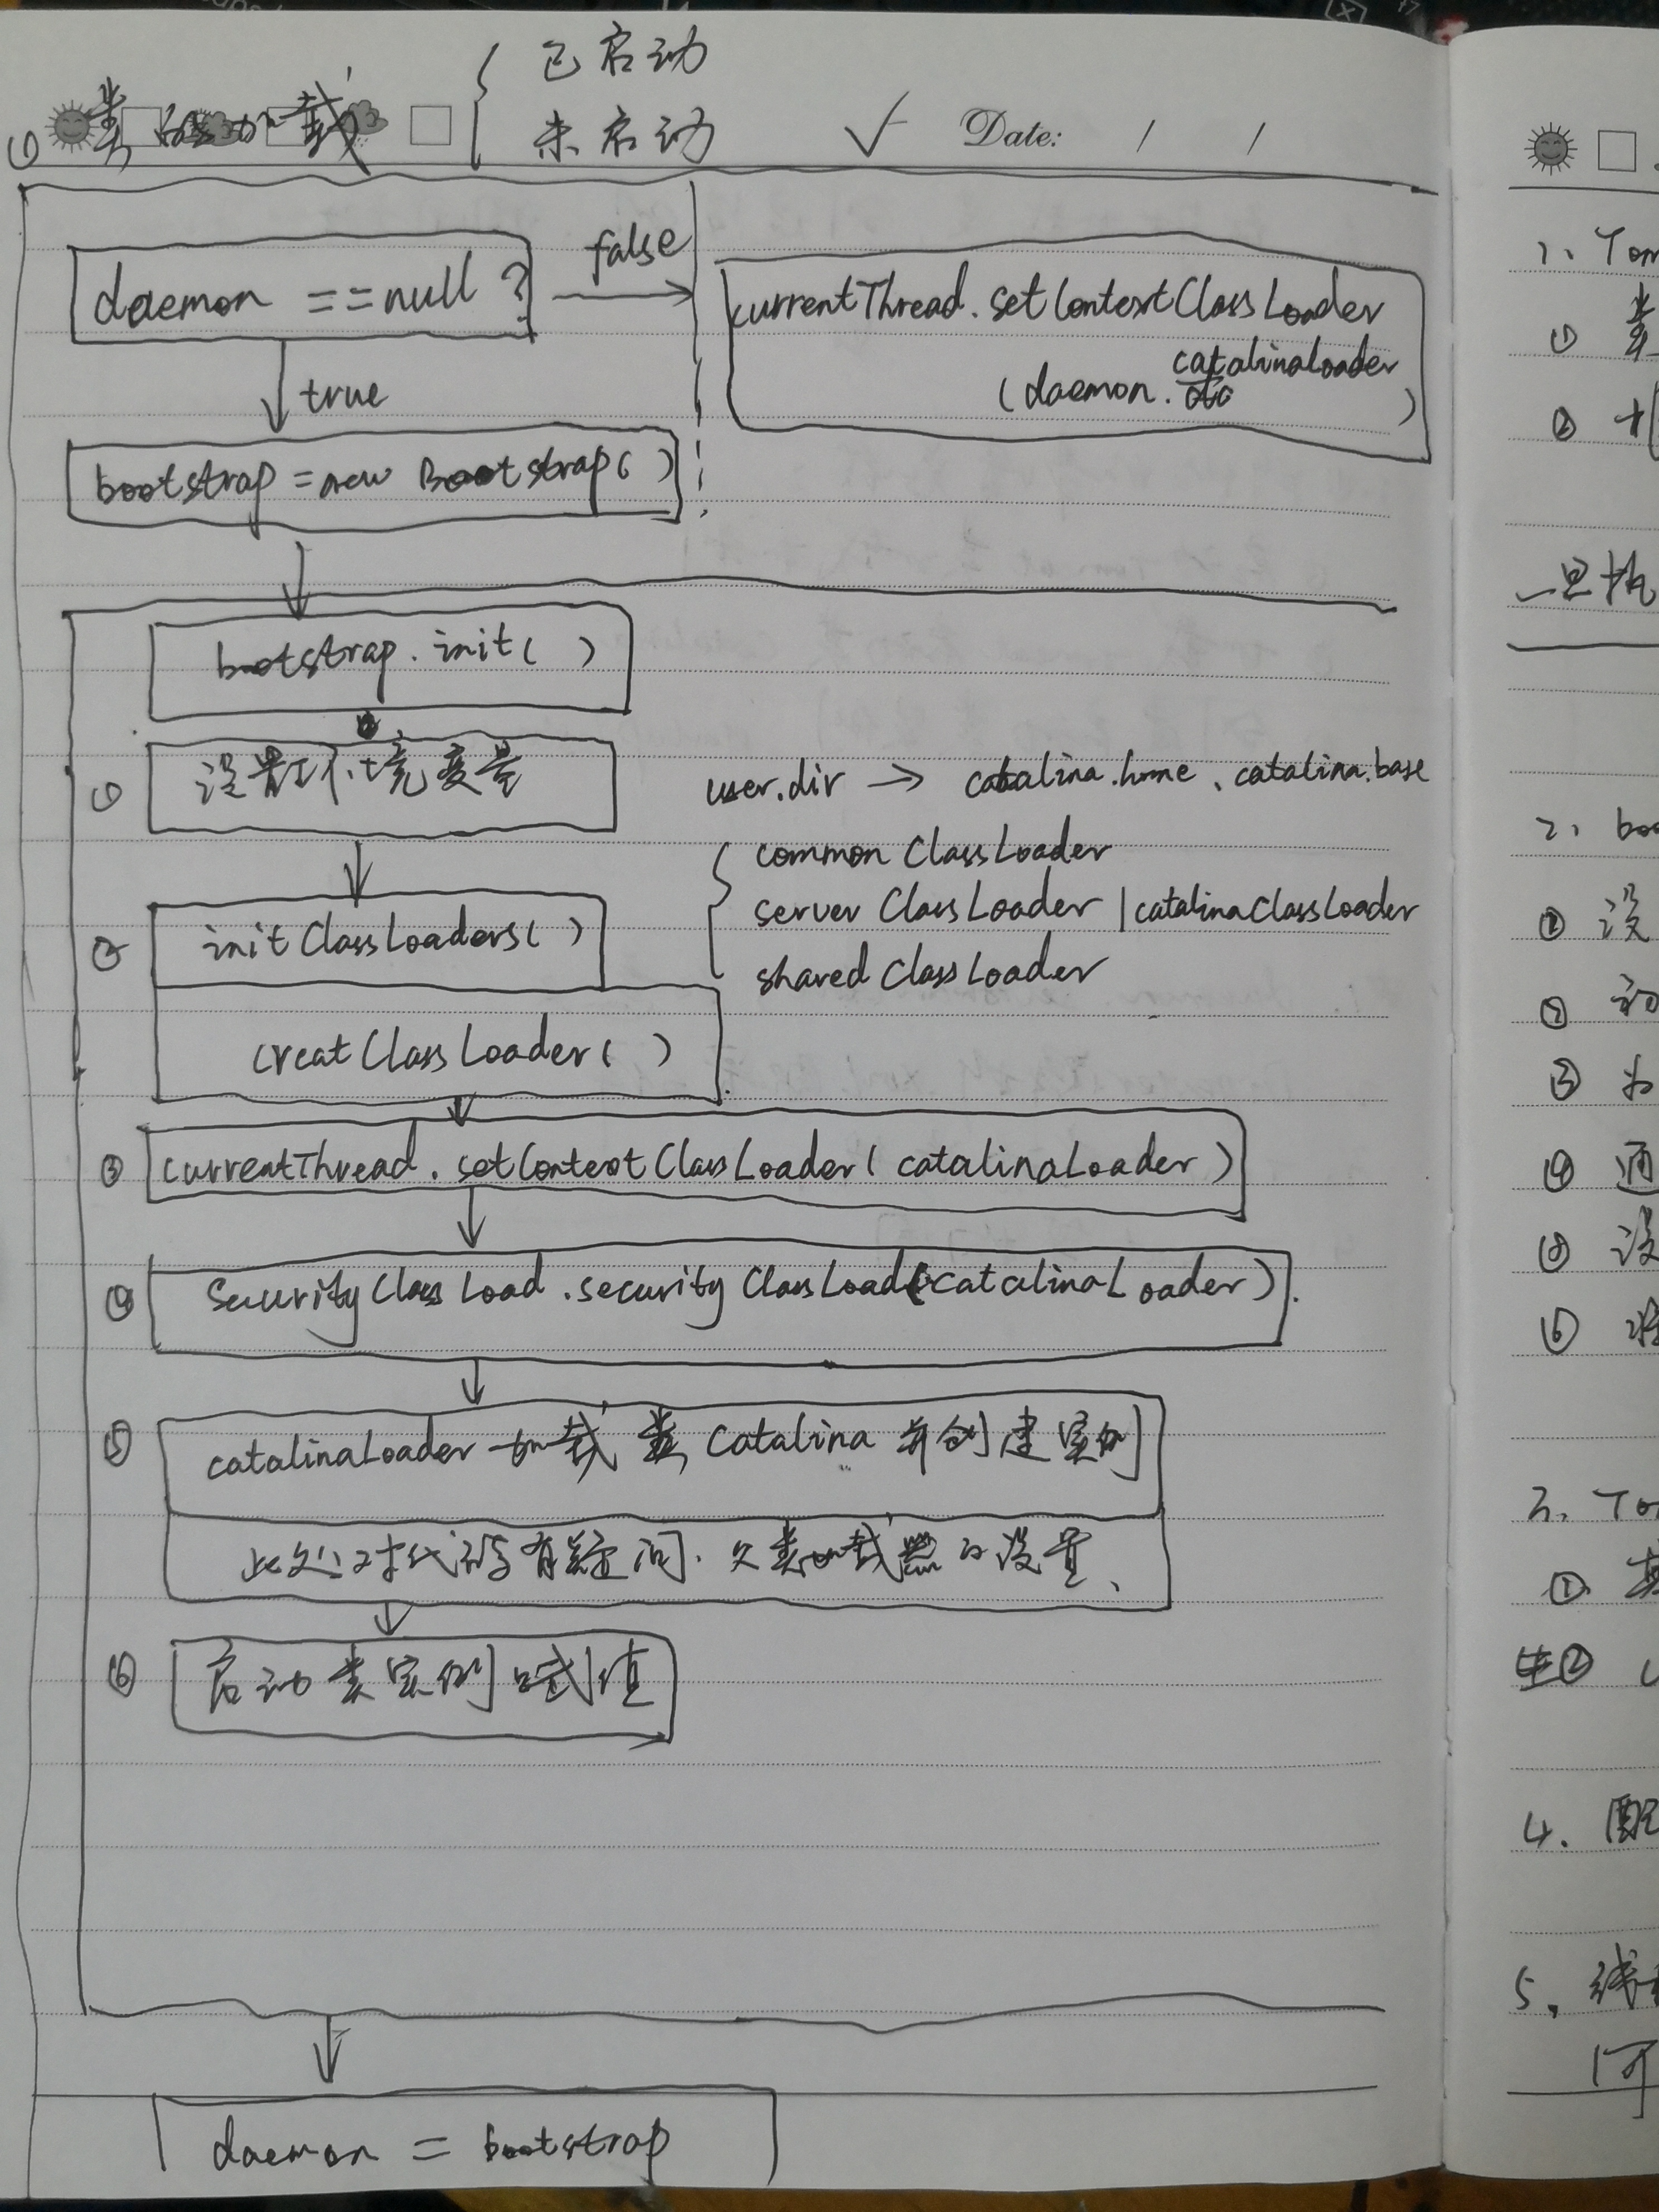 已启动
① 类的加载
未启动
Date: / /
daemon ==null ?
false
currentThread.setContextClassLoader
(daemon.catalinaLoader)
true
bootstrap = new Bootstrap( )
bootstrap.init( )
① 设置环境变量
user.dir → catalina.home、catalina.base
common ClassLoader
server ClassLoader | catalinaClassLoader
shared ClassLoader
② initClassLoaders( )
creatClassLoader( )
③ currentThread.setContextClassLoader( catalinaLoader )
④ SecurityClassLoad.securityClassLoad(catalinaLoader).
⑤ catalinaLoader 加载类 Catalina 并创建实例
此处对代码有疑问.父类加载器的设置、
⑥ 启动类实例赋值
daemon = bootstrap
1、Tom
① 类
②
一旦执
2、boo
② 设
② 初
③ 为
④ 通
⑤ 设
⑥
3、To
① 其
②
4. 配
5、线